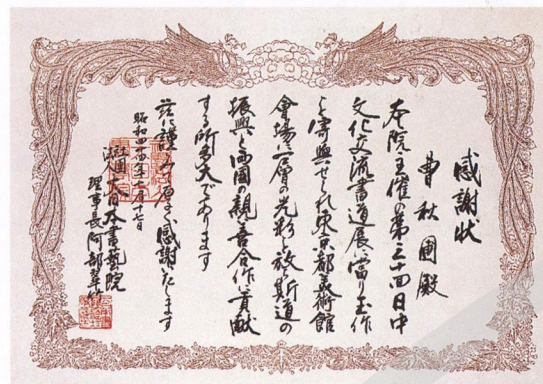 感謝状
曹秋圃殿
本院主催の第三十四日中
文化交流書道展に当り玉作
を寄与せられ東京都美術館
会場に一層の光彩を放ち斯道の
振興と両国の親善合作に貢献
する所多大であります
茲に謹みて厚く感謝いたします
昭和四十四年七月十七日
社団法人大日本書芸院
理事長阿部翠竹